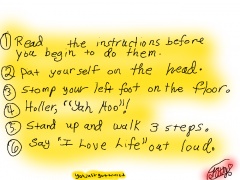 ① Read the instructions before
you begin to do them.
② Pat yourself on the head.
③ Stomp your left foot on the floor.
④ Holler, "Yah Hoo"!
⑤ Stand up and walk 3 steps.
⑥ Say "I Love Life" out loud.